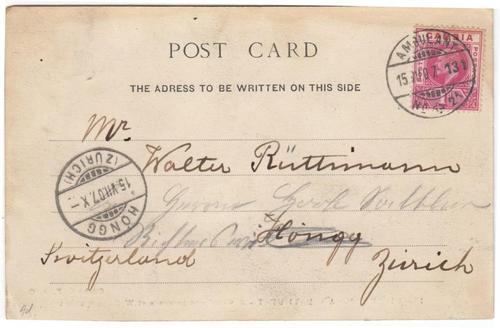 GAMBIA
POST CARD
AMBULANT
15.VII.07.-13
No 
THE ADRESS TO BE WRITTEN ON THIS SIDE
Mr.
Walter Rüttimann
(ZÜRICH)
15.VII.07.X-
HÖNGG
Höngg
Switzerland Zürich